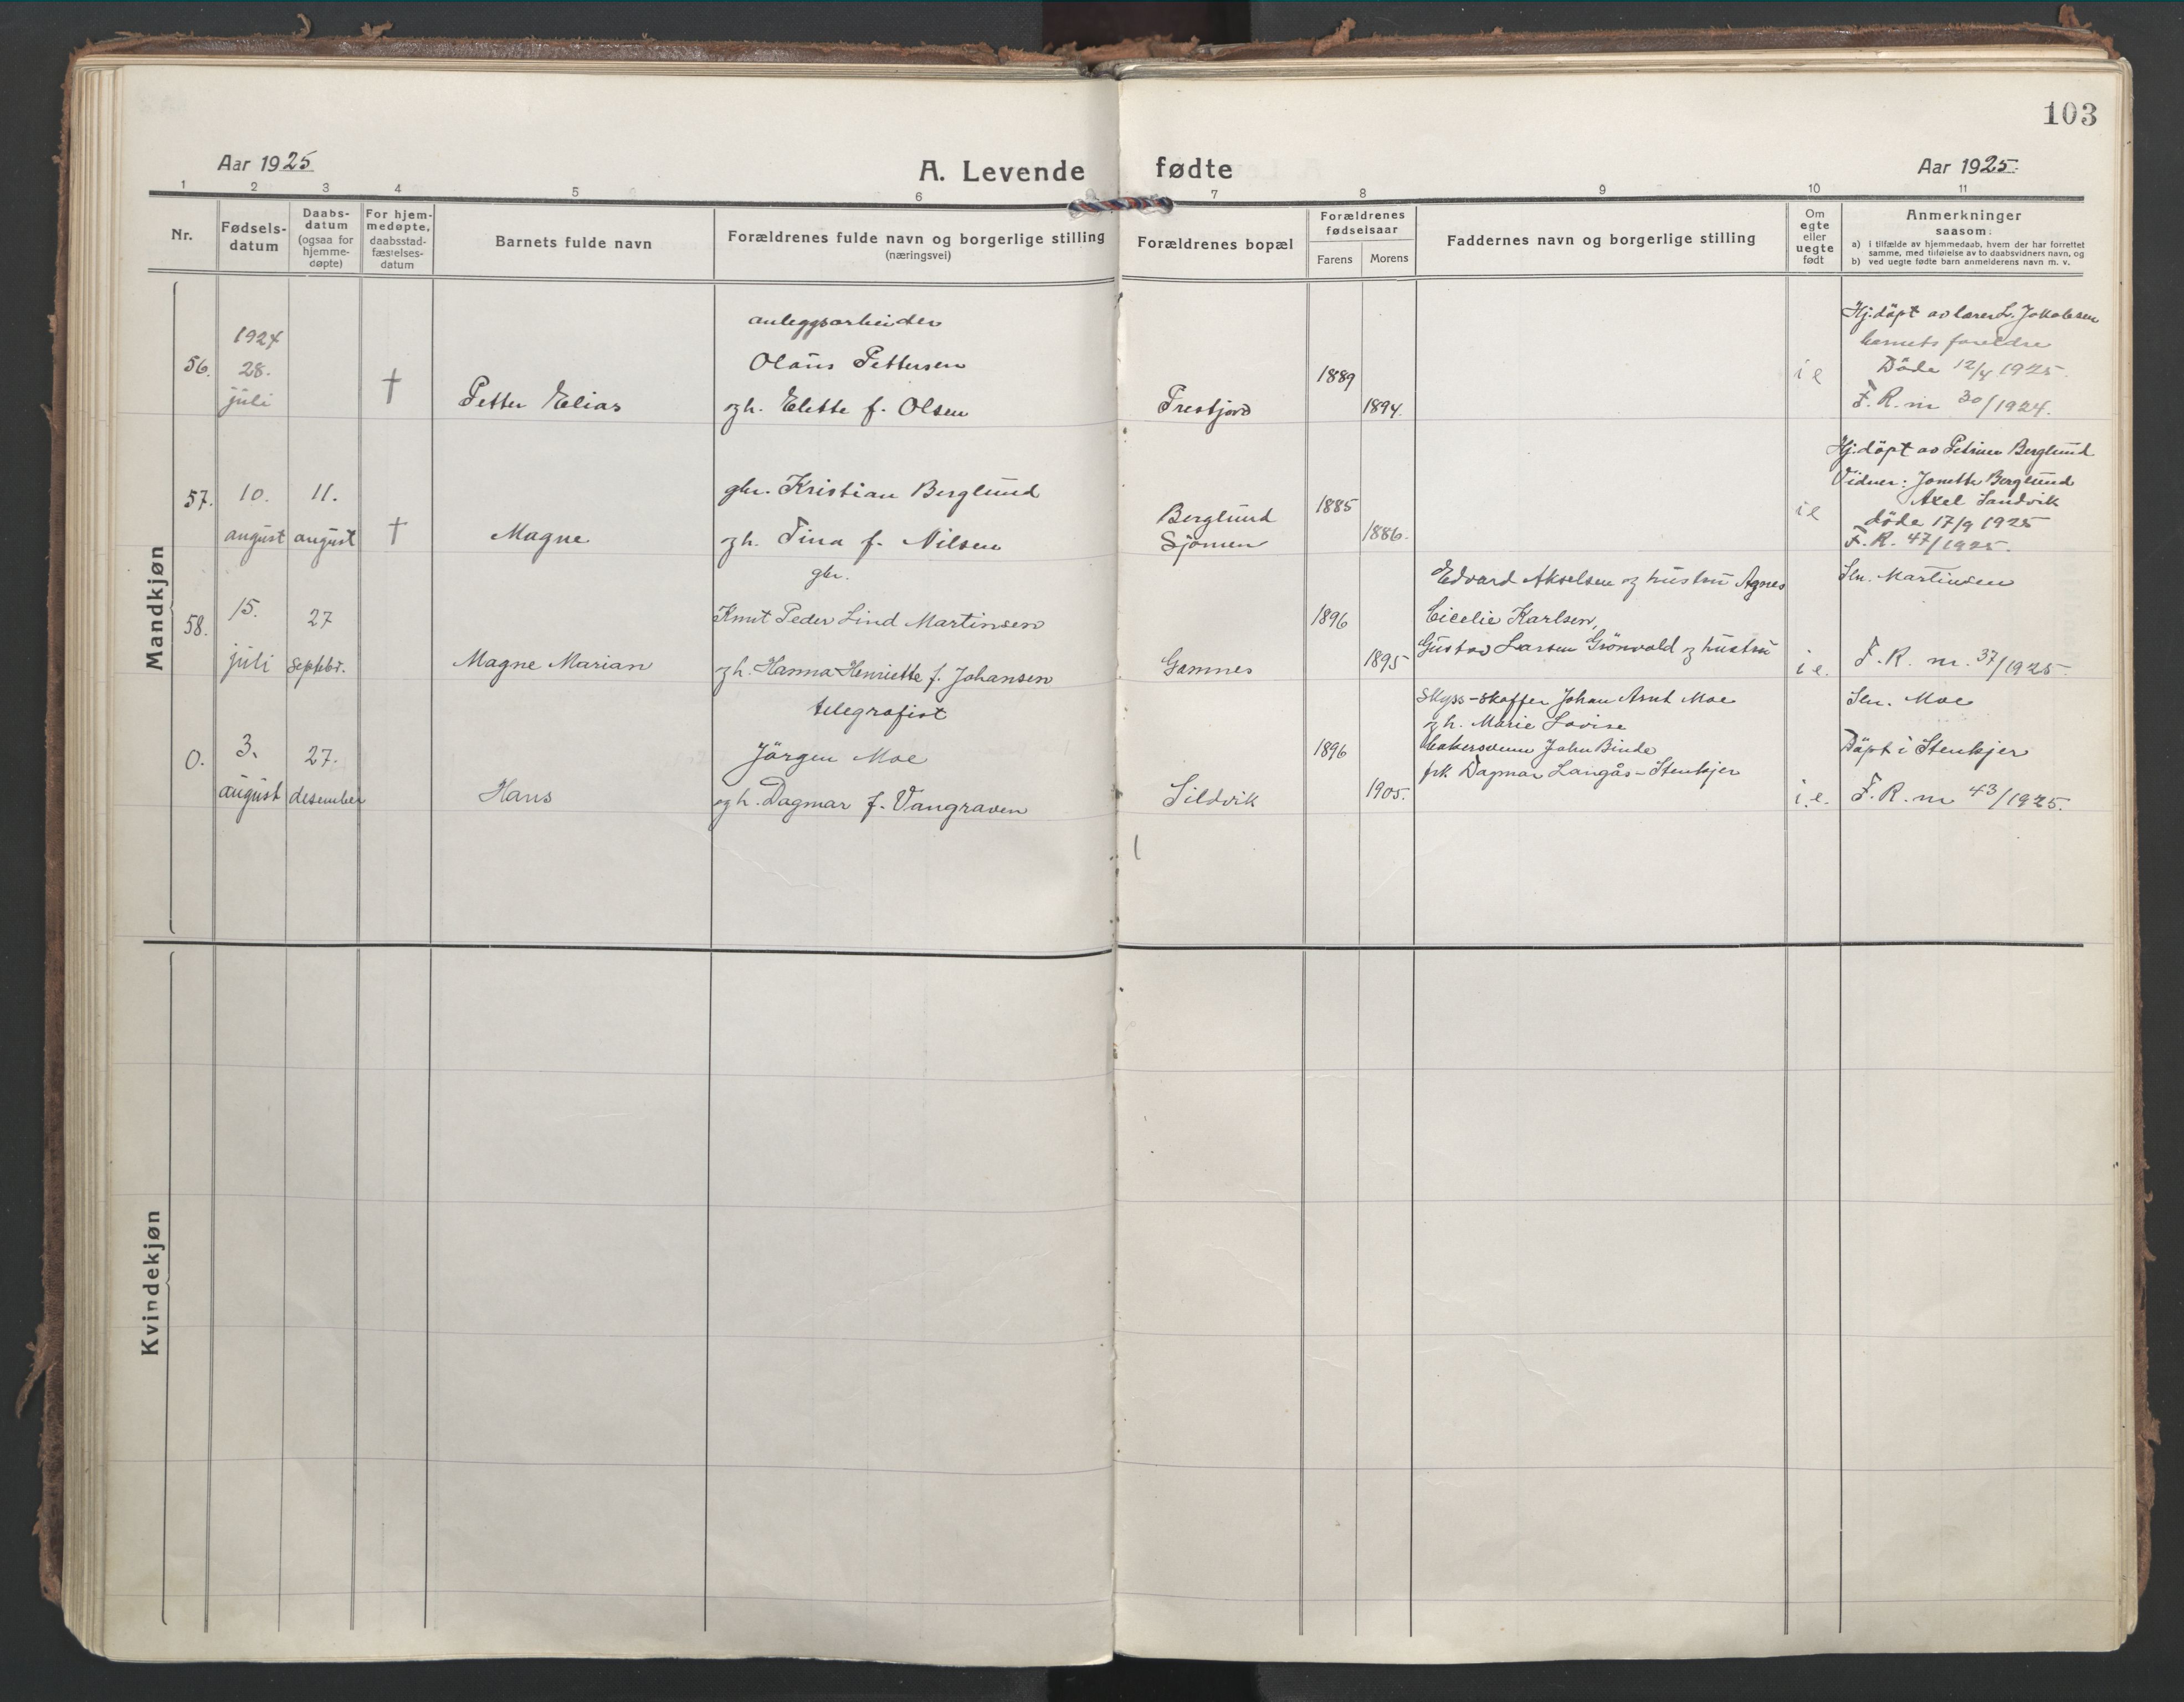 103
Aar 1925.
A. Levende fødte
Aar 1925.
1 2 3 4 5 6 7 8 9 10 11
Nr.
Fødsels-
datum
Daabs-
datum
(ogsaa for
hjemme-
døpte)
For hjem-
medøpte,
daabsstad-
fæstelses-
datum
Barnets fulde navn
Forældrenes fulde navn og borgerlige stilling
(næringsvei)
Forældrenes bopæl
Forældrenes
fødselsaar
Farens Morens
Faddernes navn og borgerlige stilling
Om
egte
eller
uegte
født
Anmerkninger
saasom:
a) i tilfælde av hjemmedaab, hvem der har forrettet
samme, med tilføielse av to daabsvidners navn, og
b) ved uegte fødte barn anmelderens navn m. v.
Mandkjøn
56.
1924
28.
juli
†
Petter Elias
anleggsarbeider
Olaus Pettersen
og h. Elette f. Olsen
Frestjord
1889
1894.
i e
Hj.döpt av lærer L. Jakobsen
barnets foreldre
Döde 12/4 1925.
F. R. nr 30/1924.
57.
10.
august
11.
august
†
Magne
gbr. Kristian Berglund
og h. Tina f. Nilsen
Berglund
Sjömen
1885
1886.
i e
Hj.döpt av Petrine Berglund
Vidner: Jonette Berglund
Axel Sandvik
döde 17/9 1925
F. R. 47/1925.
58.
15.
juli
27
Septbr.
Magne Marian
gbr.
Knut Peder Lind Martinsen
og h. Hanna Henriette f. Johansen
Gamnes
1896
1895
Edvard Akselsen og hustru Agnes
Cicelie Karlsen,
Gustav Larsen Grönvold og hustru
i e.
Sln. Martinsen
F. R. nr. 37/1925.
0.
3.
august
27.
desember
Hans
telegrafist
Jörgen Moe
og h. Dagmar f. Vangraven
Sildvik
1896
1905.
Skyss-skaffer Johan Arnt Moe
og h. Marie Lovise
bakersvenn John Binde
frk. Dagmar Langås - Stenkjer
i.e.
Sln. Moe
Döpt i Stenkjer
F. R. nr 43/1925.
Kvindekjøn